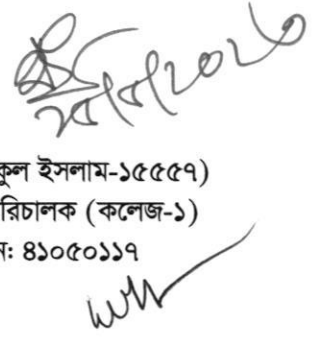 কুল ইসলাম-১৫৫৫৭)
রিচালক (কলেজ-১)
ন: ৪১০৫০১১৭